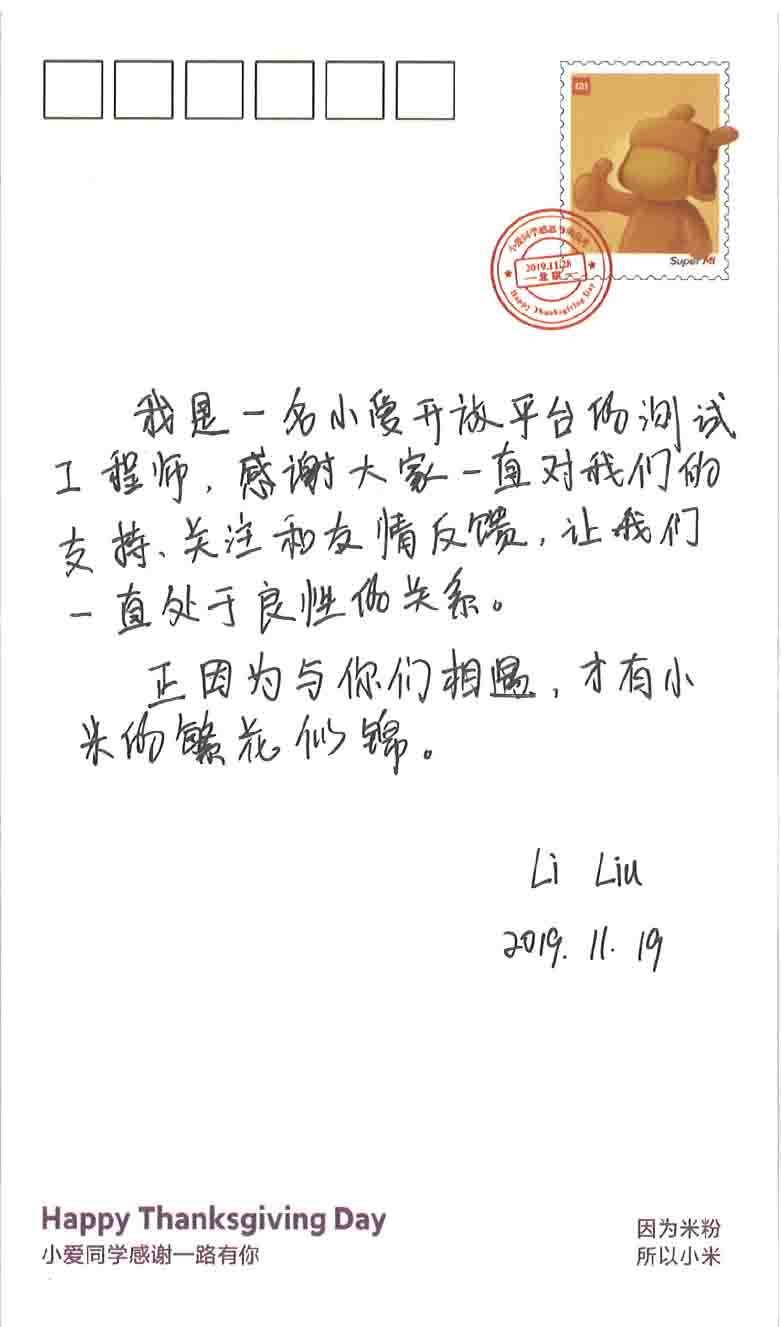 MI
Super Mi
小爱同学感恩
2019.11.28
北京
Happy Thanksgiving Day
我是一名小爱开放平台的测试
工程师，感谢大家一直对我们的
支持、关注和友情反馈，让我们
一直处于良性的关系。
正因为与你们相遇，才有小
米的繁花似锦。
Li Liu
2019.11.19
Happy Thanksgiving Day
小爱同学感谢一路有你
因为米粉
所以小米